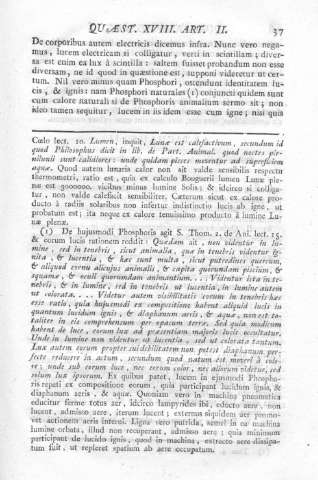 QUÆST. XVIII. ART. II. 37
De corporibus autem electricis dicemus infra. Nunc vero nega-
mus, lucem electricam si colligatur, verti in scintillam; diver-
sa est enim ea lux à scintilla: saltem fuisset probandum non esse
diversam, ne id quod in quæstione est, supponi videretur ut cer-
tum. Nil vero minus quam Phosphori, ostendunt identitatem lu-
cis, & ignis: nam Phosphori naturales (1) conjuncti quidem sunt
cum calore naturali si de Phosphoris animalium sermo sit; non
ideo tamen sequitur, lucem in iisdem esse cum igne; nisi quis
Cœlo lect. 10. Lumen, inquit, Lunæ est calefactivum, secundum id
quod Philosophus dicit in lib. de Part. Animal. quod noctes ple-
nilunii sunt calidiores: unde quidam pisces moventur ad superficiem
aquæ. Quod autem lunaris calor non sit valde sensibilis respectu
thermometri, ratio est, quia ex calculo Bouguerii lumen Lunæ ple-
næ est 300000. vicibus minus lumine Solis; & idcirco si colliga-
tur, non valde calefacit sensibiliter. Cæterum sicut ex calore pro-
ducto à radiis solaribus non infertur indistinctio lucis ab igne, ut
probatum est; ita neque ex calore tenuissimo producto à lumine Lu-
næ plenæ.
(1) De hujusmodi Phosphoris agit S. Thom. 2. de Ani. lect. 15.
& eorum lucis rationem reddit: Quædam ait, non videntur in lu-
mine, sed in tenebris, sicut animalia, quæ in tenebris videntur ig-
nita, & lucentia, & hæc sunt multa, sicut putredines quercuum,
& aliquod cornu alicujus animalis, & capita quorumdam piscium, &
squamæ, & oculi quorumdam animantium.... Videntur ista in te-
nebris, & in lumine, sed in tenebris ut lucentia, in lumine autem
ut colorata.... Videtur autem visibilitatis eorum in tenebris hæc
esse ratio, quia hujusmodi ex compositione habent aliquid lucis in
quantum lucidum ignis, & diaphanum aeris, & aquæ, non est to-
taliter in eis comprehensum per opacum terræ. Sed quia modicum
habent de luce, eorum lux ad præsentiam majoris lucis occultatur.
Unde in lumine non videntur ut lucentia, sed ut colorata tantum.
Lux autem eorum propter suidebilitatem non potest diaphanum per-
fecte reducere in actum, secundum quod natum est moveri à colo-
re; unde sub eorum luce, nec eorum color, nec aliorum videtur, sed
solum lux ipsorum. Ex quibus patet, lucem in ejusmodi Phospho-
ris repeti ex compositione eorum, quia participant lucidum ignis, &
diaphanum aeris, & aquæ. Quoniam vero in machina pneumatica
educitur ferme totus aer, idcirco lampyrides ibi, educto aere, non
lucent, admisso aere, iterum lucent: externus siquidem aer promo-
vet actionem aeris interni. Ligna vero putrida, semel in ea machina
lumine orbata, illud non recuperant, admisso aere; quia minimum
participant de lucido ignis, quod in machina, extracto aere dissipa-
tum fuit, ut repleret spatium ab aere occupatum.